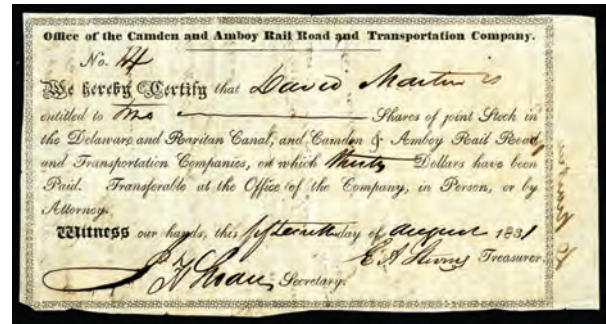 Office of the Camden and Amboy Rail Road and Transportation Company.
No.
We hereby Certify that David Martin is
entitled to Two Shares of joint Stock in
the Delaware and Raritan Canal, and Camden & Amboy Rail Road
and Transportation Companies, on which thirty Dollars have been
Paid. Transferable at the Office of the Company, in Person, or by
Attorney.
Witness our hands, this fifteenth day of august 1831
E A Stevens Treasurer.
Secretary.